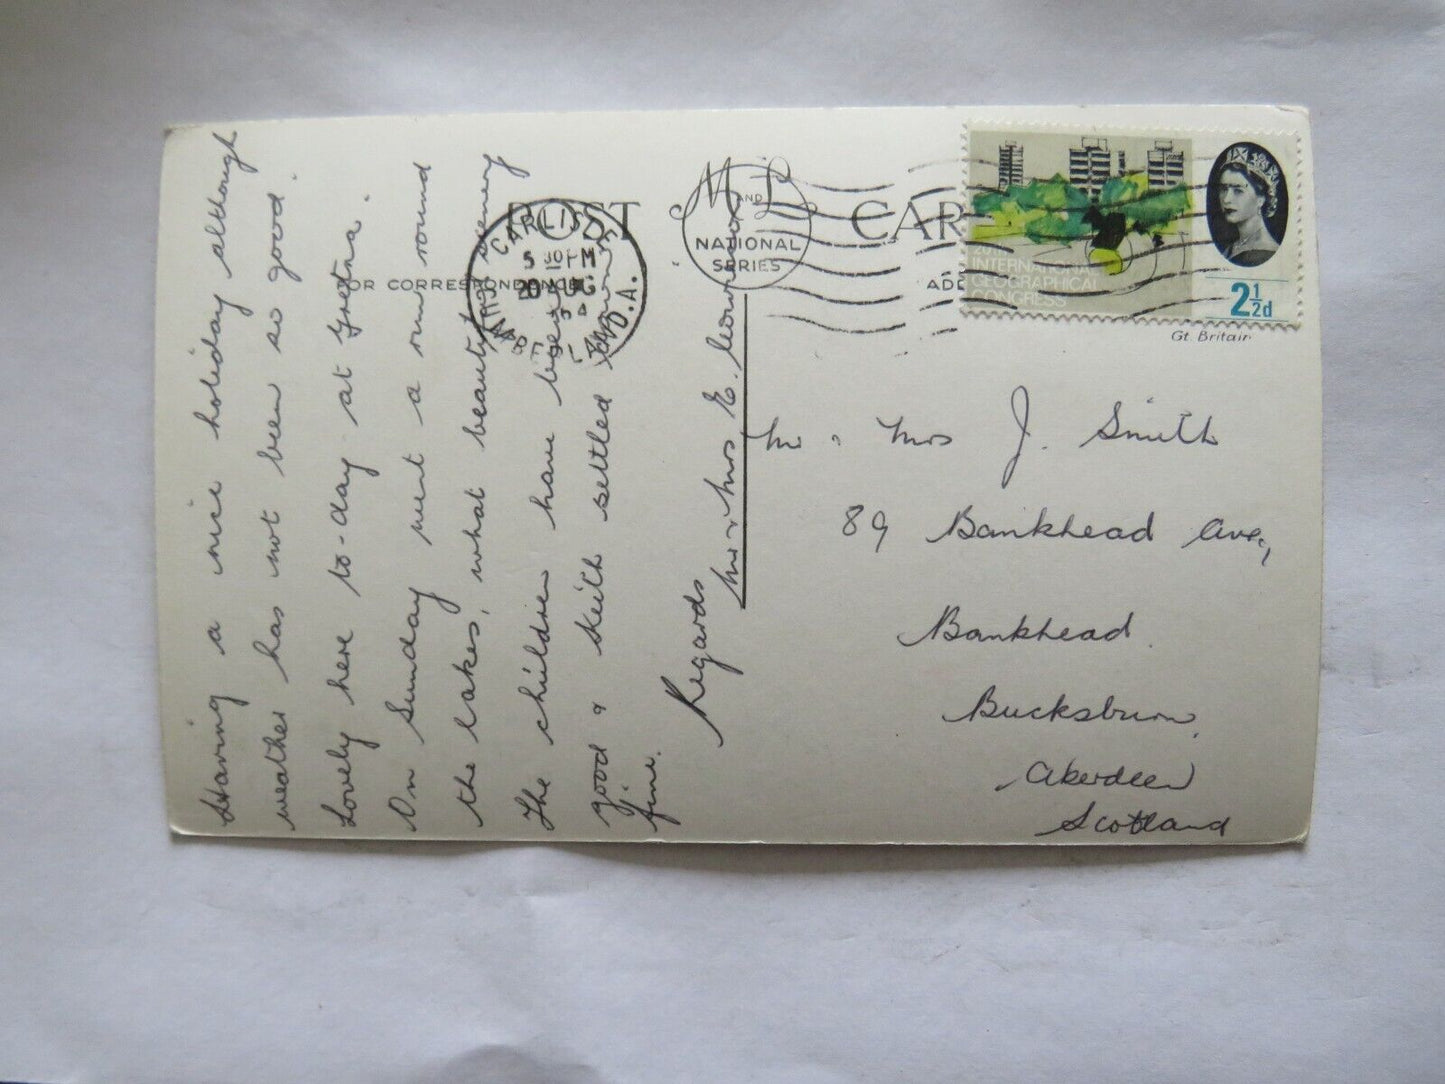 POST CARD
M AND L
NATIONAL
SERIES
FOR CORRESPONDENCE
CARLISLE
5 30 PM
20 AUG
CUMBERLAND
20TH INTERNATIONAL
GEOGRAPHICAL
CONGRESS
2½d
Gt. Britain
Having a nice holiday although
weather has not been so good.
Lovely here to-day at Gretna.
On Sunday went a run round
the lakes, what beautiful scenery
The children have been
good & Keith settled down
fine.
Regards
Mr & Mrs E.
Mr & Mrs J. Smith
89 Bankhead Ave.,
Bankhead.
Bucksburn,
Aberdeen
Scotland